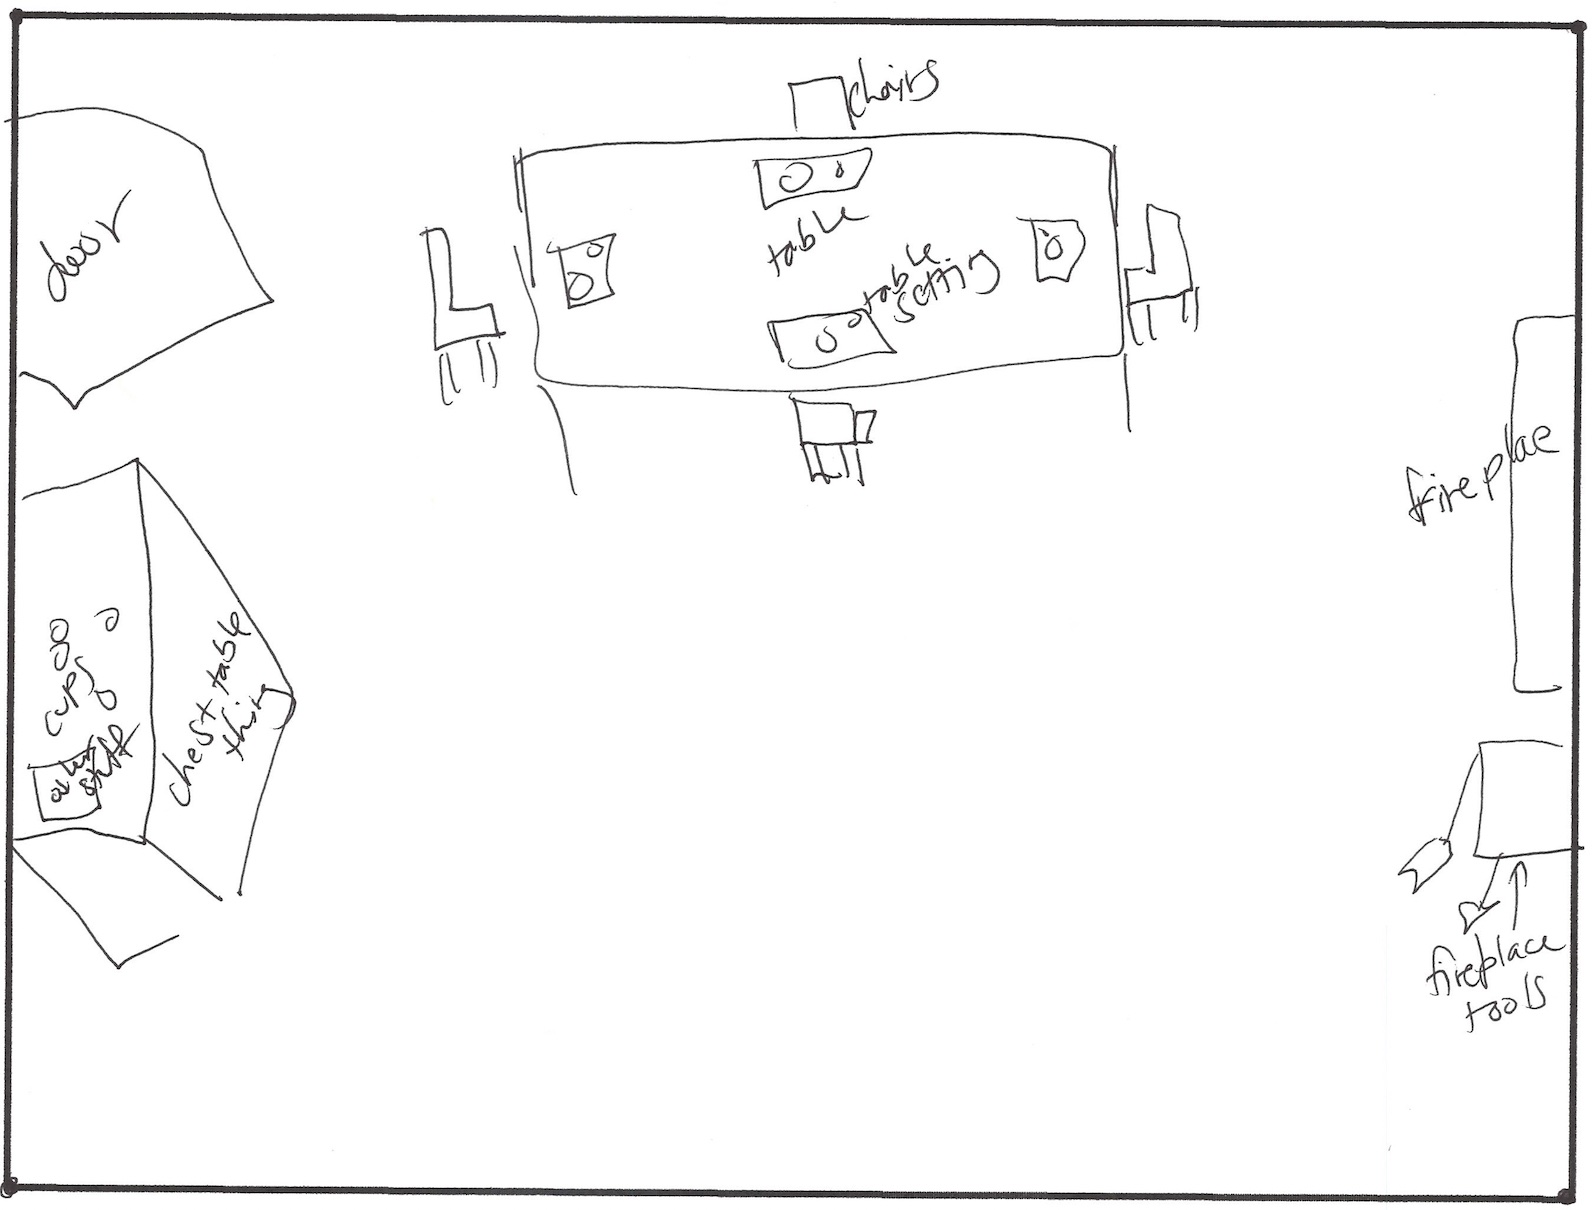 chairs
door
table
table
setting
fireplae
cups
other
stuff
chest table
thing
fireplace
tools